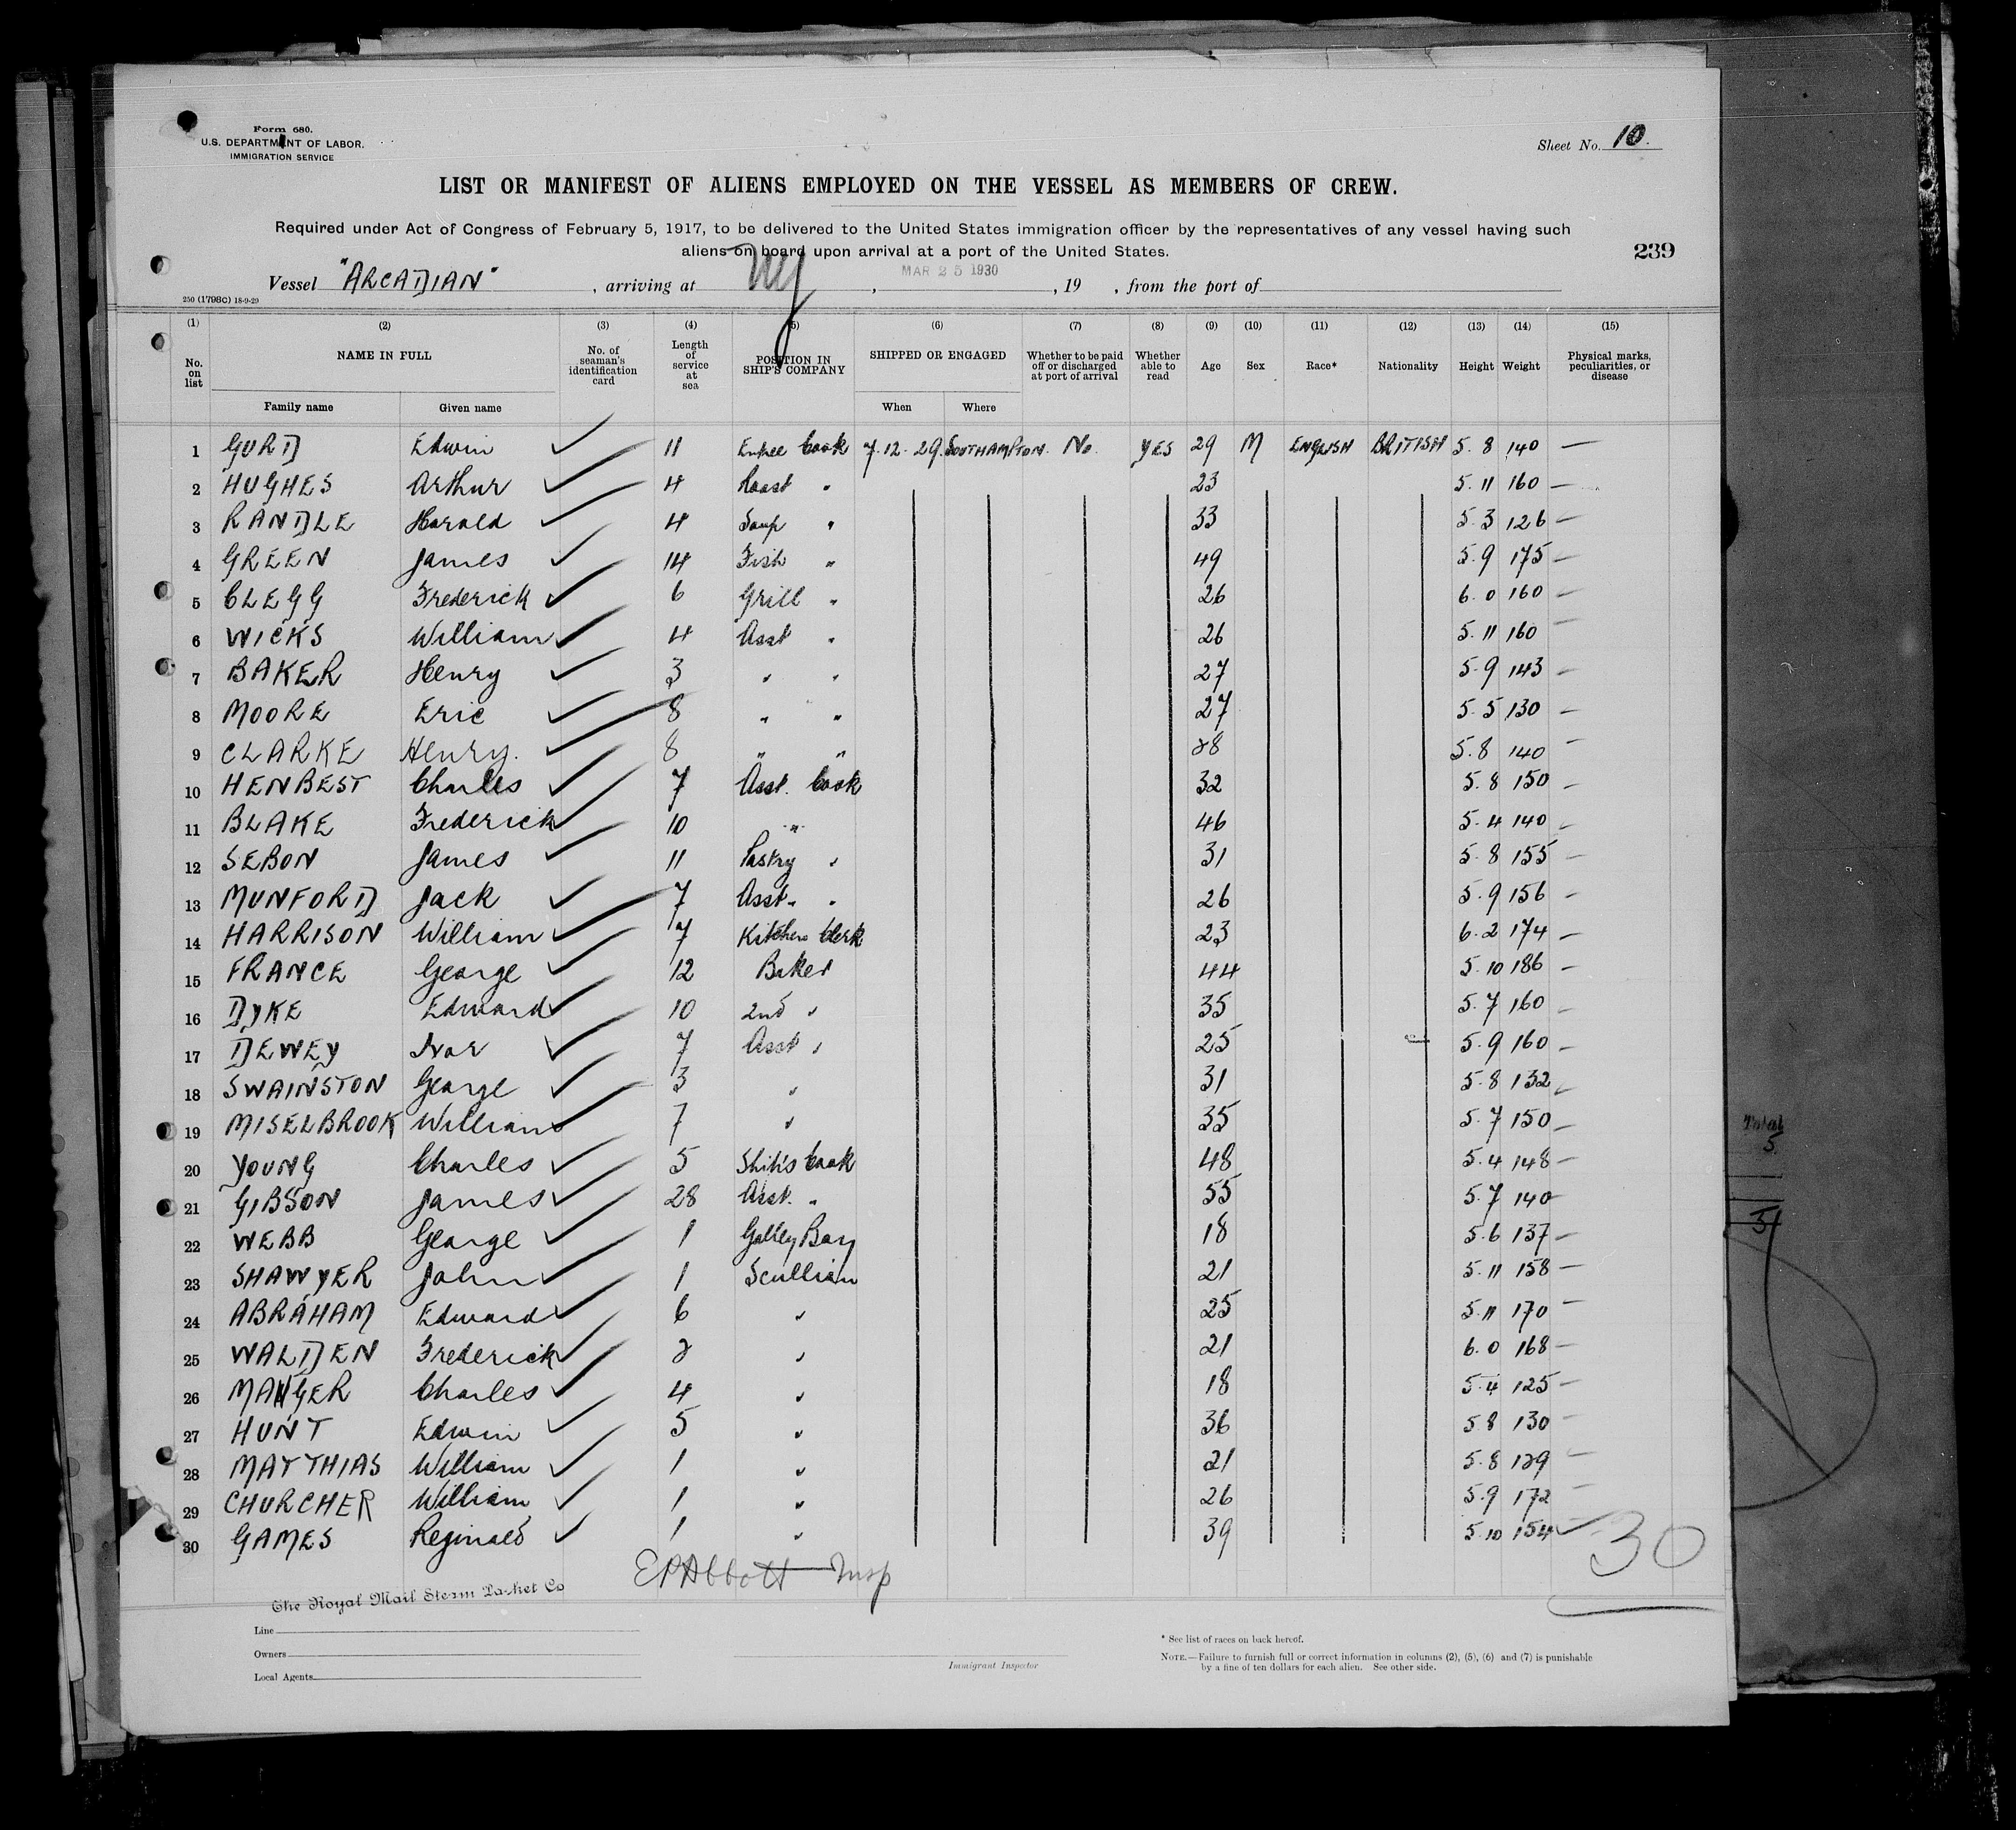 Form 680.
U.S. DEPARTMENT OF LABOR.
IMMIGRATION SERVICE
Sheet No. 10.
LIST OR MANIFEST OF ALIENS EMPLOYED ON THE VESSEL AS MEMBERS OF CREW.
Required under Act of Congress of February 5, 1917, to be delivered to the United States immigration officer by the representatives of any vessel having such
aliens on board upon arrival at a port of the United States.
239
Vessel "ARCADIAN", arriving at NY, MAR 25 1930, 19 , from the port of
250 (1798c) 18-9-29
(1) (2) (3) (4) (5) (6) (7) (8) (9) (10) (11) (12) (13) (14) (15)
No. on list NAME IN FULL No. of seaman's identification card Length of service at sea POSITION IN SHIP'S COMPANY SHIPPED OR ENGAGED Whether to be paid off or discharged at port of arrival Whether able to read Age Sex Race* Nationality Height Weight Physical marks, peculiarities, or disease
Family name Given name When Where
1 GURD Edwin 11 Entree Cook 7.12.29. SOUTHAMPTON. No. YES 29 M ENGLISH BRITISH 5.8 140 —
2 HUGHES Arthur 4 Roast " 23 5.11 160 —
3 RANDLE Harold 4 Soup " 33 5.3 126 —
4 GREEN James 14 Fish " 49 5.9 175 —
5 CLEGG Frederick 6 Grill " 26 6.0 160 —
6 WICKS William 4 Asst " 26 5.11 160 —
7 BAKER Henry 3 " " 27 5.9 143 —
8 MOORE Eric 8 " " 27 5.5 130 —
9 CLARKE Henry. 8 " " 28 5.8 140 —
10 HENBEST Charles 7 Asst. Cook 32 5.8 150 —
11 BLAKE Frederick 10 " 46 5.4 140 —
12 SEBON James 11 Pastry " 31 5.8 155 —
13 MUNFORD Jack 7 Asst. " 26 5.9 156 —
14 HARRISON William 7 Kitchen Clerk 23 6.2 174 —
15 FRANCE George 12 Baker 44 5.10 186 —
16 DYKE Edward 10 2nd " 35 5.7 160 —
17 DEWEY Ivor 7 Asst " 25 5.9 160 —
18 SWAINSTON George 3 " 31 5.8 132 —
19 MISELBROOK William 7 " 35 5.7 150 —
20 YOUNG Charles 5 Ship's Cook 48 5.4 148 —
21 GIBSON James 28 Asst. " 55 5.7 140 —
22 WEBB George 1 Galley Boy 18 5.6 137 —
23 SHAWYER John 1 Scullion 21 5.11 158 —
24 ABRAHAM Edward 6 " 25 5.11 170 —
25 WALDEN Frederick 2 " 21 6.0 168 —
26 MANGER Charles 4 " 18 5.4 125 —
27 HUNT Edwin 5 " 36 5 8 130 —
28 MATTHIAS William 1 " 21 5.8 129 —
29 CHURCHER William 1 " 26 5.9 172 —
30 GAMES Reginald 1 " 39 5.10 154
30
EPAbbott Insp
The Royal Mail Steam Packet Co
Line
Owners
Local Agents
Immigrant Inspector
* See list of races on back hereof.
NOTE.—Failure to furnish full or correct information in columns (2), (5), (6) and (7) is punishable
by a fine of ten dollars for each alien. See other side.
Total
5
51